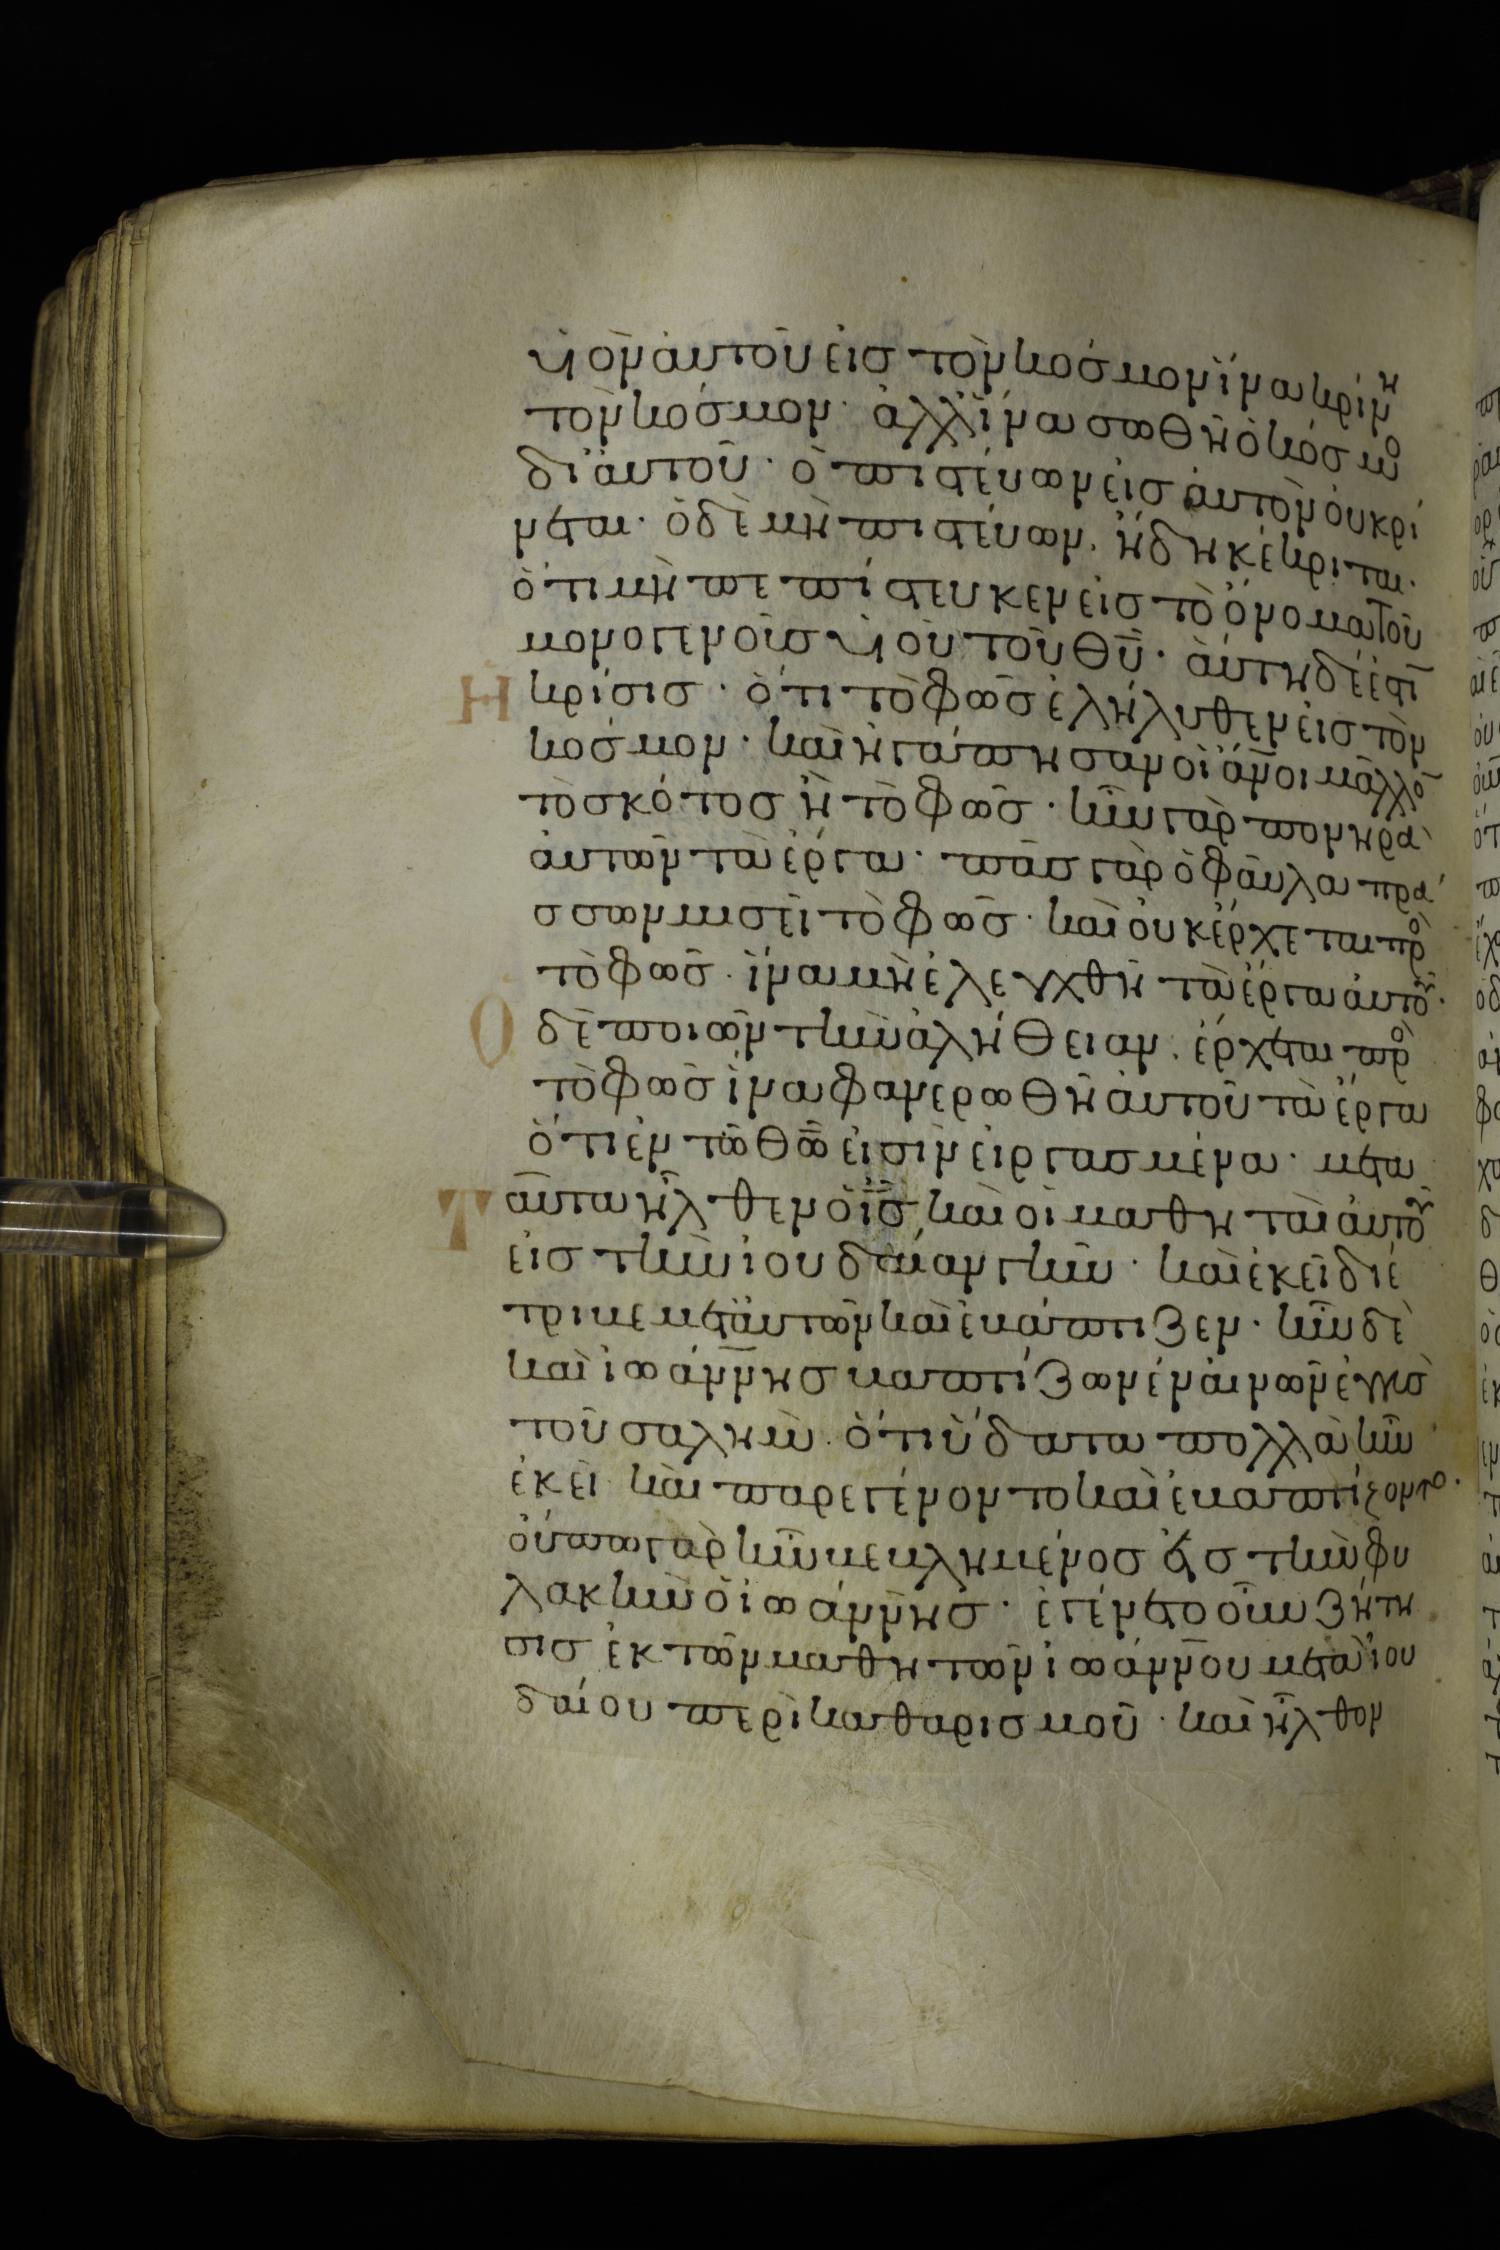 υἱὸν αὐτοῦ εἰς τὸν κόσμον ἵνα κρίνη
τὸν κόσμον· ἀλλ' ἵνα σωθῆ ὁ κόσμος
δι' αὐτοῦ· ὁ πιστεύων εἰς αὐτὸν οὐ κρί
νεται· ὁ δὲ μὴ πιστεύων, ἤδη κέκριται·
ὅτι μὴ πεπίστευκεν εἰς τὸ ὄνομα τοῦ
μονογενοῦς υἱοῦ τοῦ θυ· αὕτη δέ ἐστιν
Ἡ κρίσις· ὅτι τὸ φῶς ἐλήλυθεν εἰς τὸν
κόσμον· καὶ ἠγάπησαν οἱ ἀνοι μᾶλλον
τὸ σκότος ἢ τὸ φῶς· ἦν γὰρ πονηρὰ
αὐτῶν τὰ ἔργα· πᾶς γὰρ ὁ φαῦλα πρά
σσων μισεῖ τὸ φῶς· καὶ οὐκ ἔρχεται πρὸς
τὸ φῶς· ἵνα μὴ ἐλεγχθῆ τὰ ἔργα αὐτοῦ·
Ὁ δὲ ποιῶν τὴν ἀλήθειαν, ἔρχεται πρὸς
τὸ φῶς ἵνα φανερωθῆ αὐτοῦ τὰ ἔργα
ὅτι ἐν τῶ θω εἰσὶν εἰργασμένα· μετα
Ταῦτα ἦλθεν ὁ ις καὶ οἱ μαθηταὶ αὐτοῦ
εἰς τὴν ἰουδαίαν γῆν· καὶ ἐκεῖ διέ
τριβε μετ' αὐτῶν καὶ ἐβάπτιζεν· ἦν δὲ
καὶ ἰωάννης βαπτίζων ἐν αἰνὼν ἐγγὺς
τοῦ σαλήμ· ὅτι ὕδατα πολλὰ ἦν
ἐκεῖ καὶ παρεγένοντο καὶ ἐβαπτίζοντο·
οὔπω γὰρ ἦν βεβλημένος εἰς τὴν φυ
λακὴν ὁ ἰωάννης· ἐγένετο οὖν ζήτη
σις ἐκ τῶν μαθητῶν ἰωάννου μετὰ ἰου
δαίου περὶ καθαρισμοῦ· καὶ ἦλθον